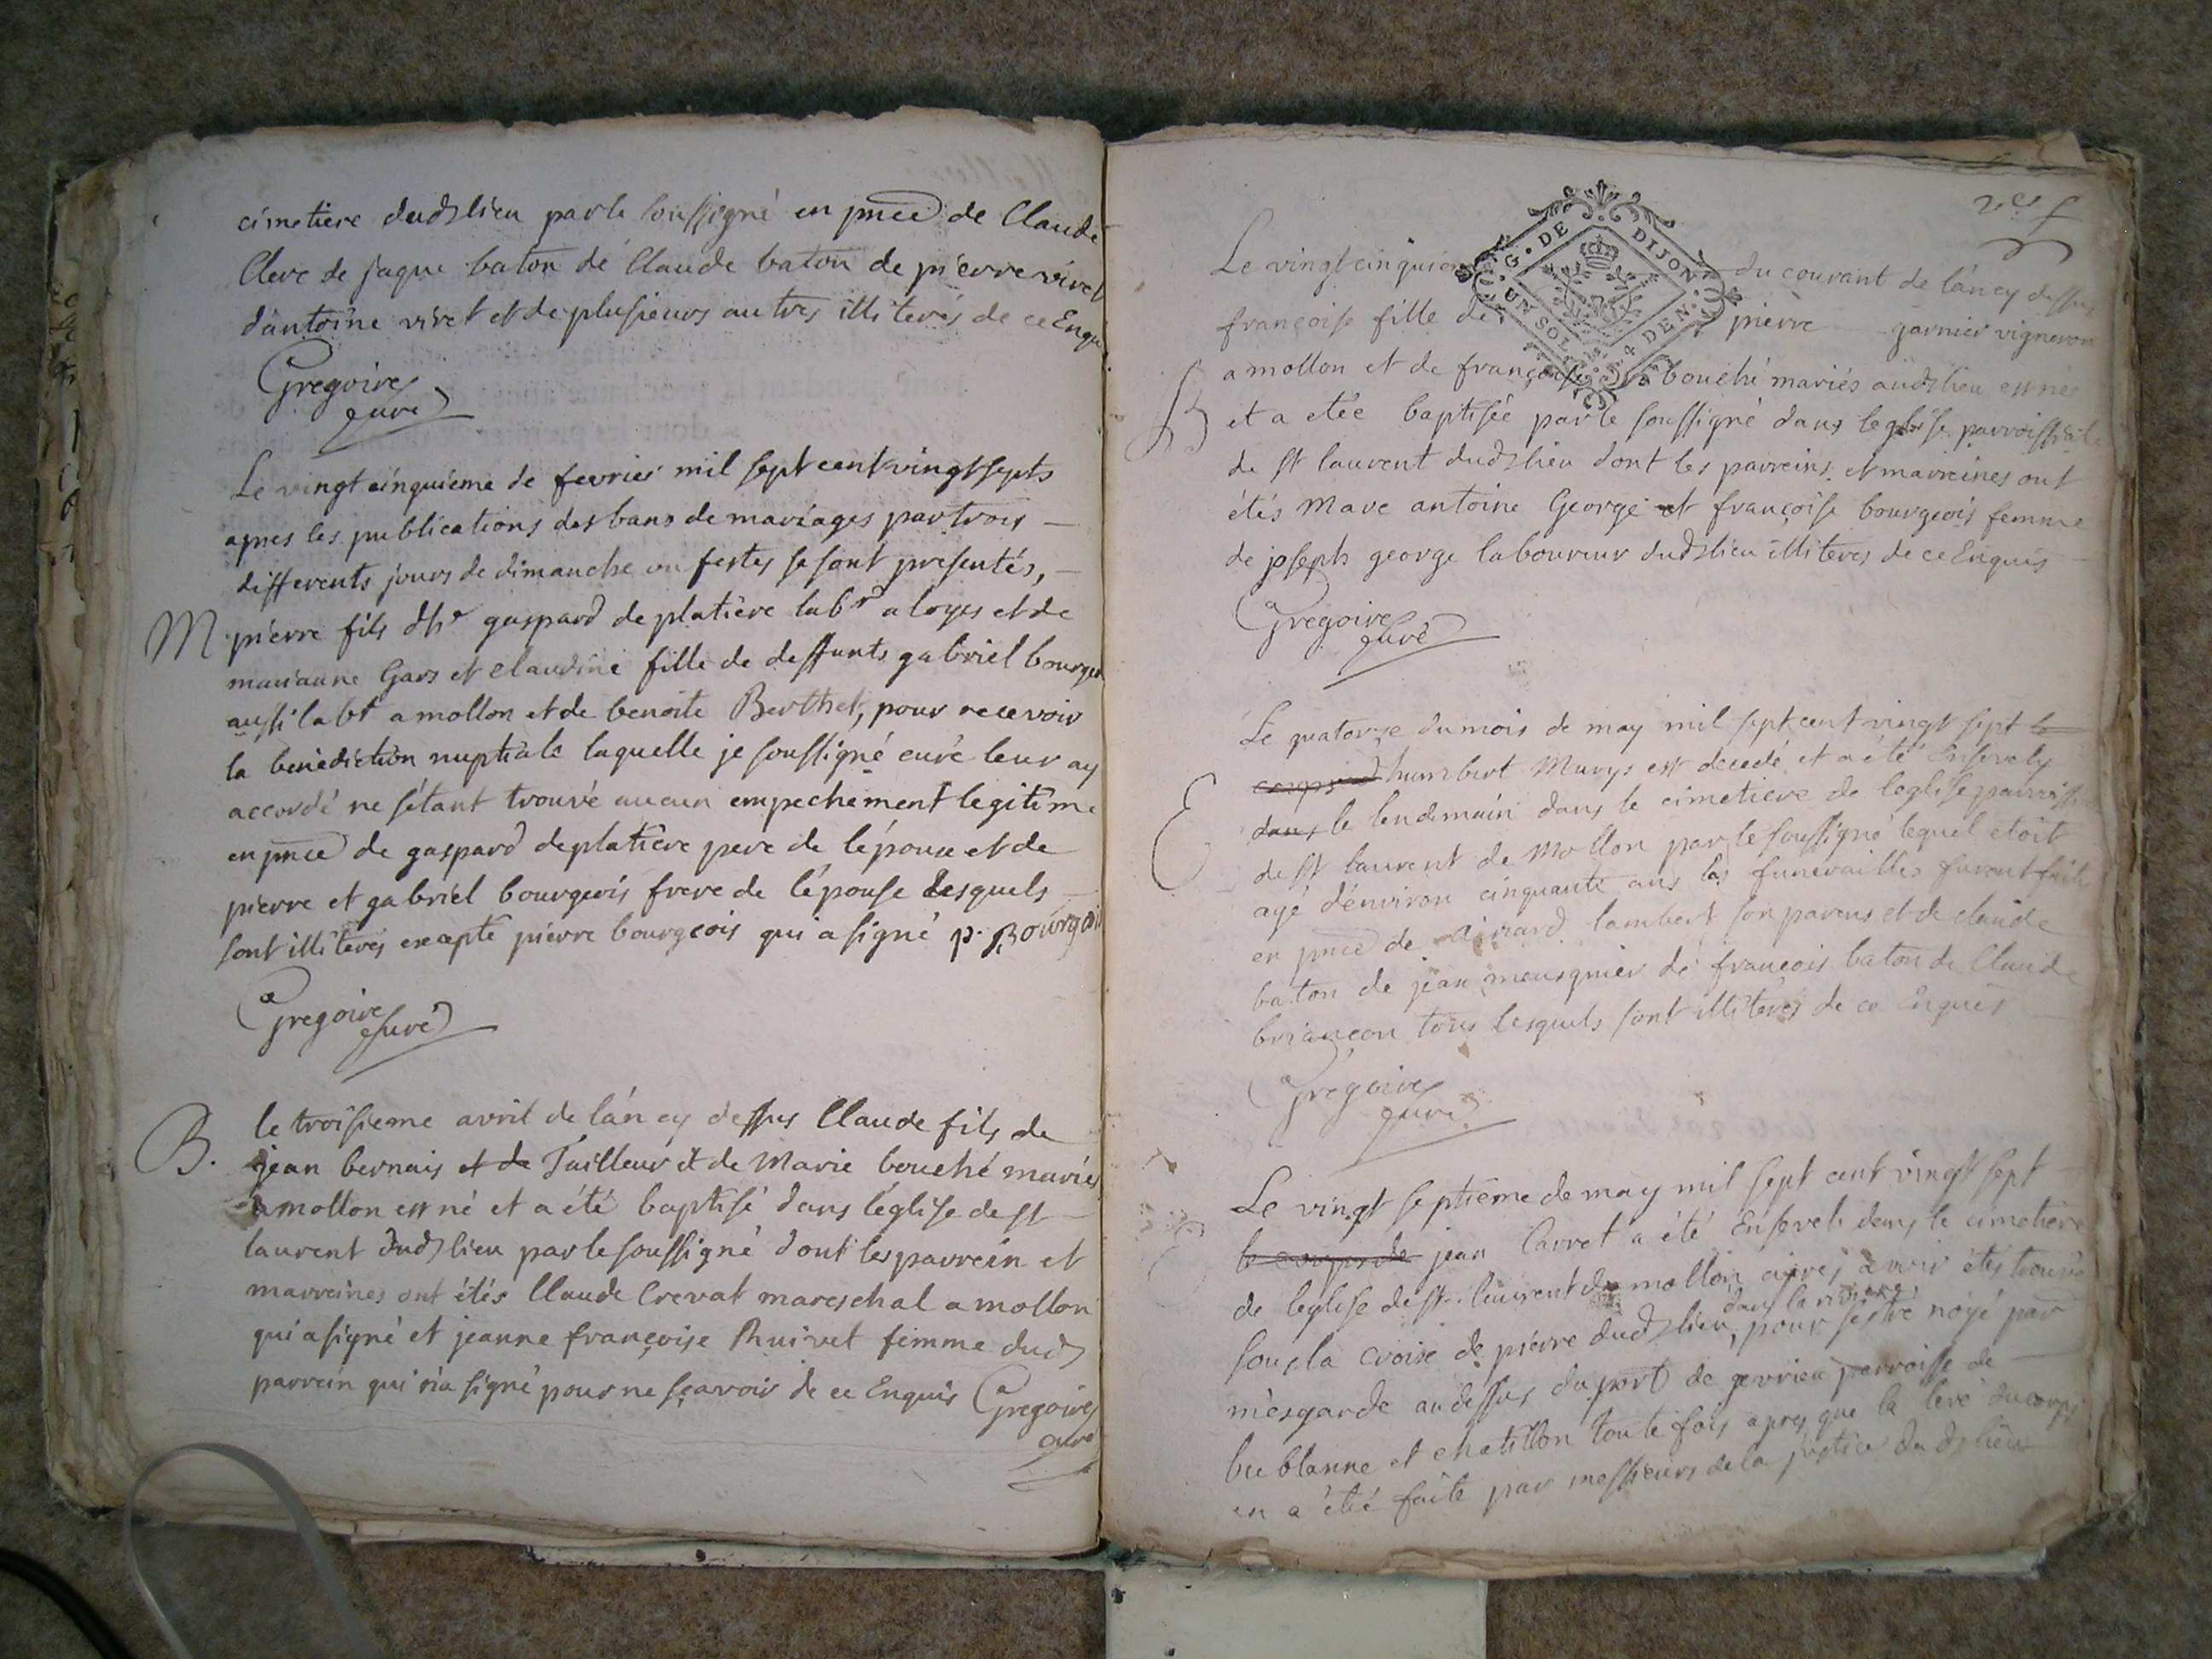 cimetiere dud lieu par le soussigné en pnce de Claude
Clerc de jaque baton de Claude baton de pierre vivet
d'antoine vivet et de plusieurs autres illiterés de ce Enqu
Gregoire
curé
Le vingt cinquième de fevrier mil sept cent vingt septs
apres les publications des bans de mariages par trois
differents jours de dimanche ou festes se sont presentés,
M
pierre fils d'hr gaspard de platière labr a loyes et de
marianne Gars et claudine fille de deffunts gabriel bourge
aussi labr a mollon et de benoite Berthet, pour recevoir
la benediction nuptiale laquelle je soussigné curé leur ay
accordé ne s'étant trouvé aucun empechement legitime
en pnce de gaspard de platière pere de l'époux et de
pierre et gabriel bourgeois frere de l'épouse lesquels
sont illiterés excepté pierre bourgeois qui a signé p. Bourgois
Gregoire
curé
B.
le troisieme avril de l'an cy dessus Claude fils de
jean bernais et de Tailleur et de Marie bouché mariés
a mollon est né et a été baptisé dans l'église de st
laurent dud lieu par le soussigné dont les parrein et
marreines ont étés Claude Crevat mareschal a mollon
qui a signé et jeanne françoise Thuivet femme dud
parrein qui n'a signé pour ne sçavoir de ce Enquis Gregoire
curé
G. DE DIJON
UN SOL 4 DEN.
Le vingt cinquiem du courant de l'an cy dessus
françoise fille de pierre garnier vigneron
a mollon et de françoise bouché mariés aud lieu est née
B
et a etée baptisée par le soussigné dans l'eglise parroissiale
de st laurent dud lieu dont les parreins et marreines ont
étés Marc antoine George et françoise bourgeois femme
de joseph george laboureur dud lieu illiterés de ce Enquis
Gregoire
curé
Le quatorze du mois de may mil sept cent vingt sept le
corps d humbert Murys est decedé et a été Ensevely
E
dans le lendemain dans le cimetiere de l'eglise parroiss
de st laurent de Mollon par le soussigné lequel etoit
agé d'environ cinquante ans les funerailles furent faite
en pnce de lambert son parens et de claude
baton de jean meusgnier de françois baton de Claude
briançon tous lesquels sont illiterés de ce Enquis
Gregoire
curé
Le vingt septième de may mil sept cent vingt sept
le corps de jean Carret a été Enseveli dans le cimetiere
de l'eglise de st laurent de mollon apres avoir étés trouvé
dans la riviere
sous la croix de pierre dud lieu, pour s'estre noyé par
mesgarde au dessus du port de gevrieu parroisse de
bublanne et chatillon toute fois apres que la levé du corps
en a été faite par messieurs de la justice du d lieu